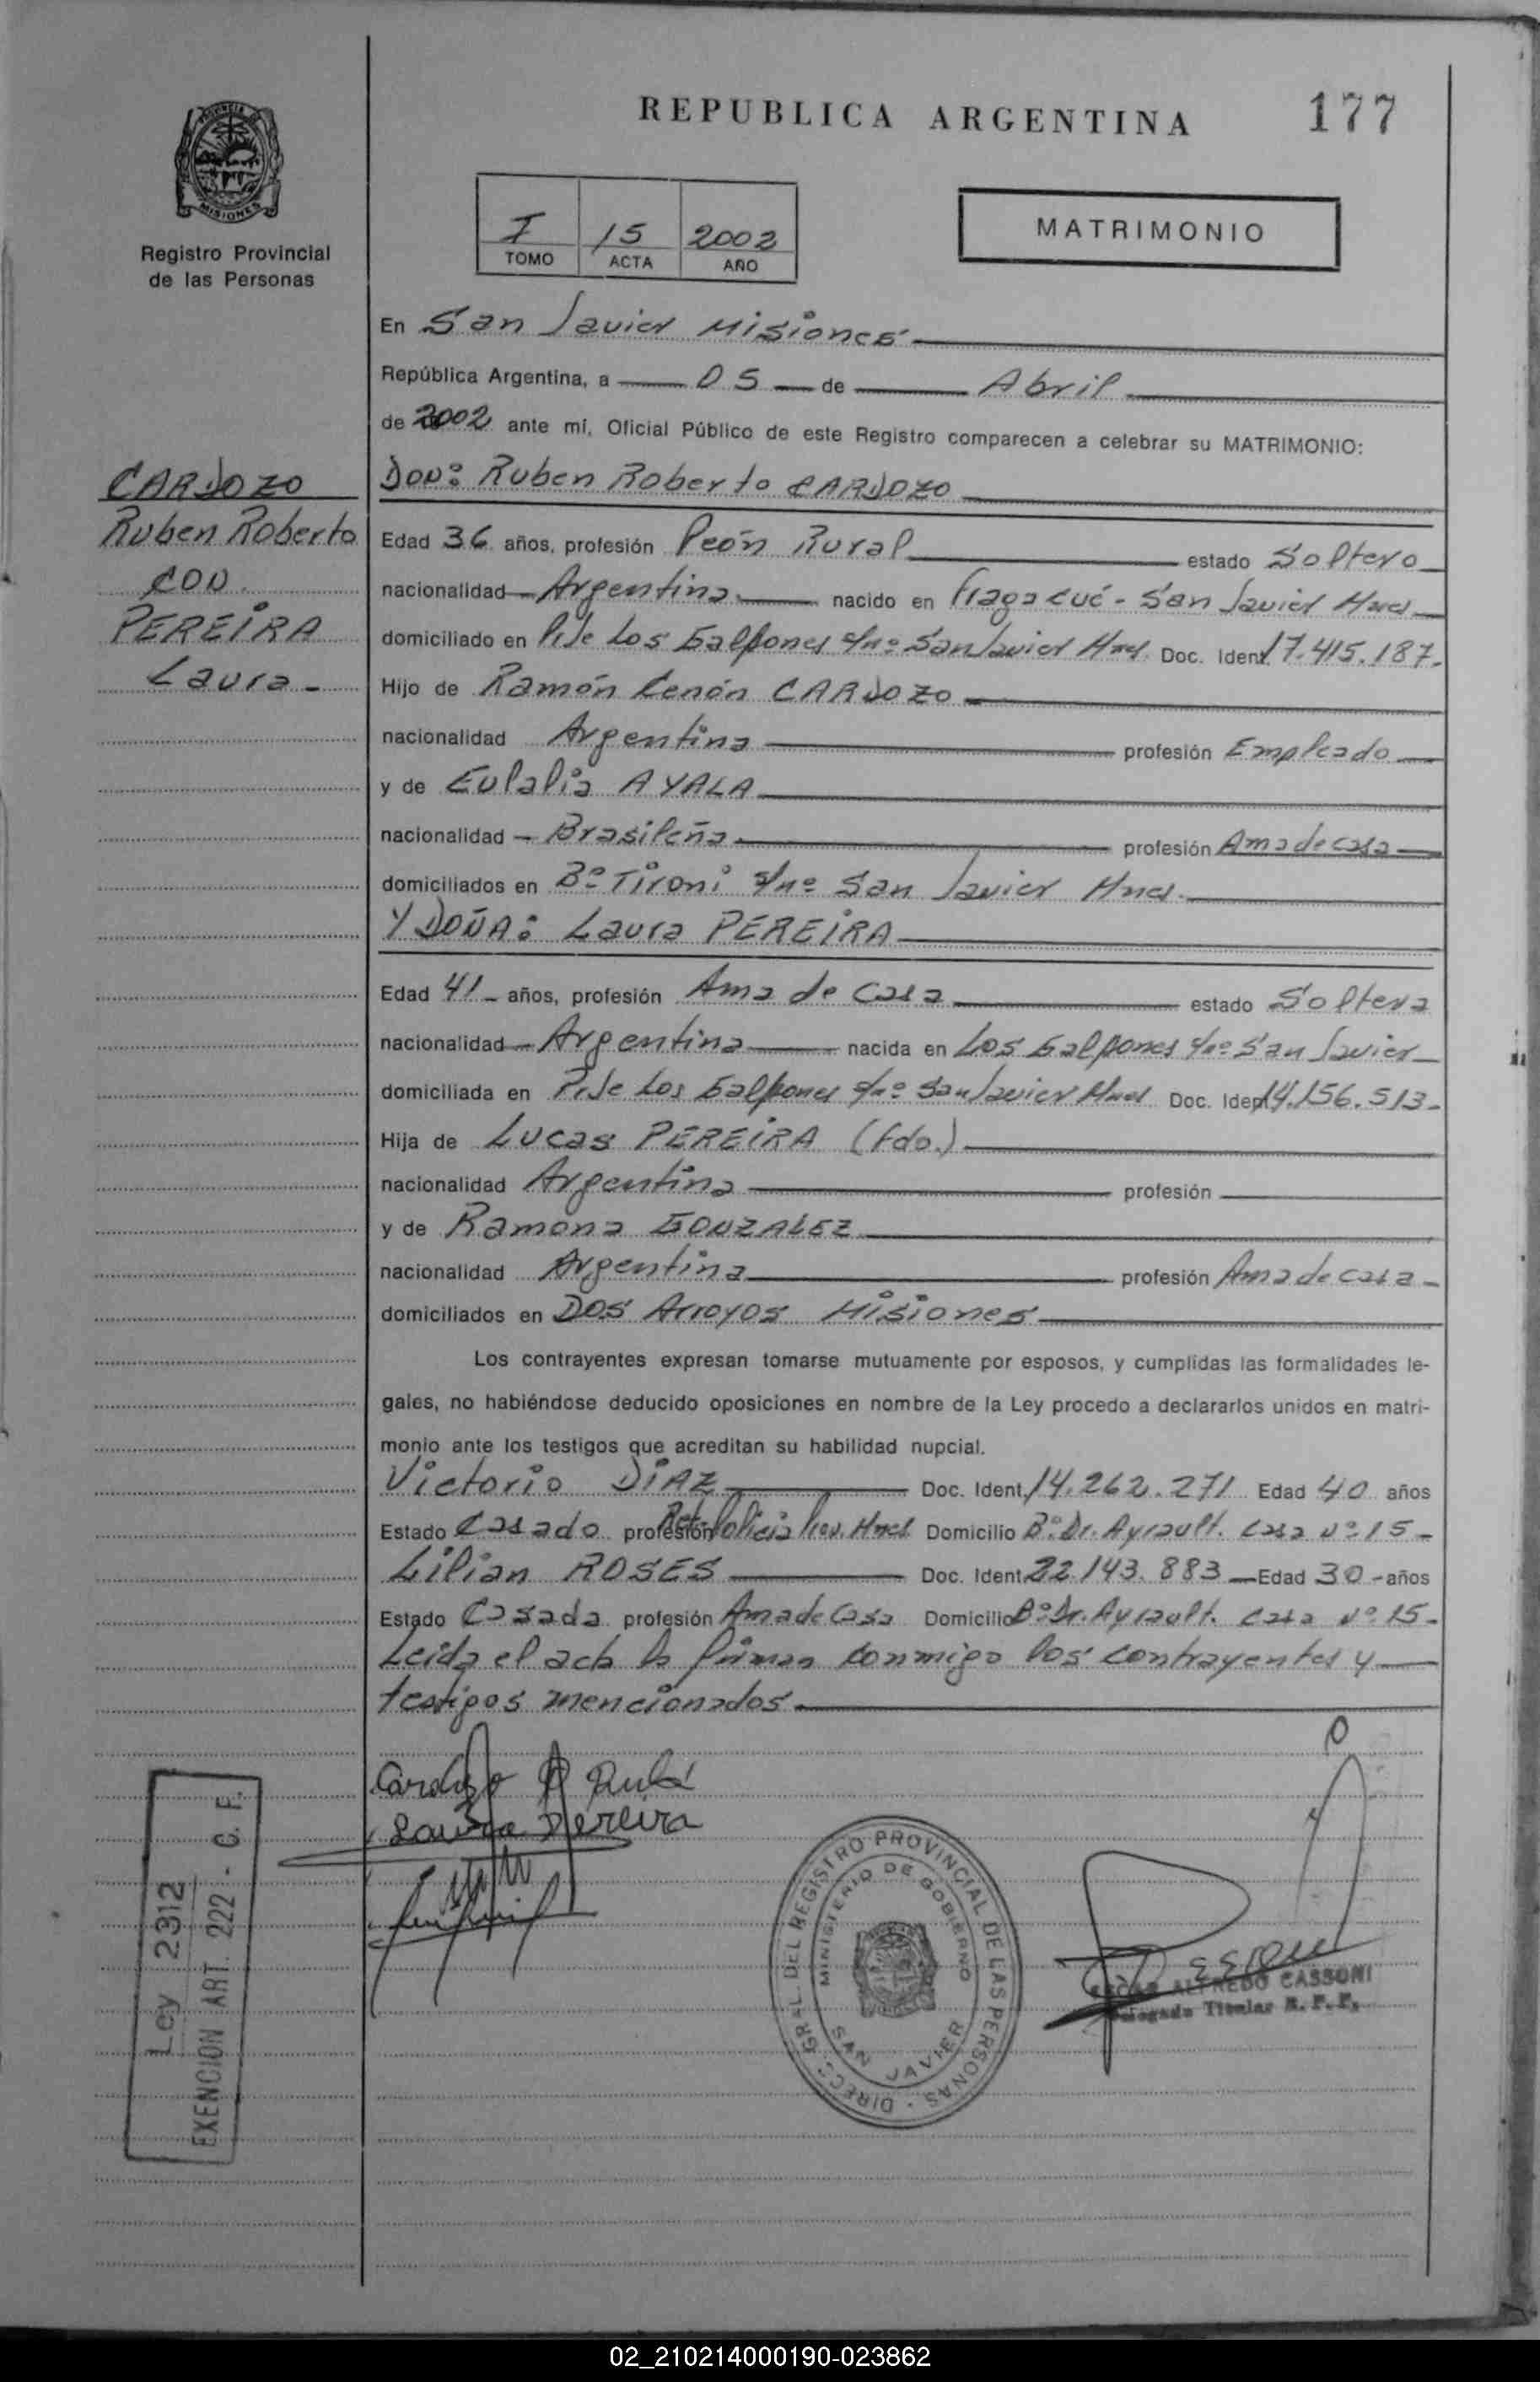 REPUBLICA ARGENTINA
177
PROVINCIA DE
MISIONES
Registro Provincial
de las Personas
I 15 2002
TOMO ACTA AÑO
MATRIMONIO
En San Javier Misiones
República Argentina, a 05 de Abril
de 2002 ante mí, Oficial Público de este Registro comparecen a celebrar su MATRIMONIO:
CARDOZO
Ruben Roberto
CON
PEREIRA
Laura
Don: Ruben Roberto CARDOZO
Edad 36 años, profesión Peón Rural estado Soltero
nacionalidad Argentina nacido en Fraga cué - San Javier Mnes
domiciliado en Los Galpones s/nº San Javier Mnes. Doc. Ident. 17.415.187.
Hijo de Ramón Cenón CARDOZO
nacionalidad Argentina profesión Empleado
y de Eulalia AYALA
nacionalidad Brasileña profesión Ama de casa
domiciliados en Bº Tironi s/nº San Javier Mnes.
Y DOÑA: Laura PEREIRA
Edad 41 años, profesión Ama de Casa estado Soltera
nacionalidad Argentina nacida en Los Galpones s/nº San Javier
domiciliada en Los Galpones s/nº San Javier Mnes Doc. Ident 14.156.513-
Hija de Lucas PEREIRA (fdo.)
nacionalidad Argentina profesión
y de Ramona GONZALEZ
nacionalidad Argentina profesión Ama de casa -
domiciliados en DOS Arroyos Misiones
Los contrayentes expresan tomarse mutuamente por esposos, y cumplidas las formalidades le-
gales, no habiéndose deducido oposiciones en nombre de la Ley procedo a declararlos unidos en matri-
monio ante los testigos que acreditan su habilidad nupcial.
Victorio DIAZ Doc. Ident. 14.262.271 Edad 40 años
Estado Casado profesión Ret. Policia Prov. Mnes Domicilio Bº Dr. Ayrault. Casa Nº 15-
Lilian ROSES Doc. Ident. 22.143.883 Edad 30 - años
Estado Casada profesión Ama de Casa Domicilio Bº Dr. Ayrault. Casa Nº 15.
Leida el acta la firman conmigo los contrayentes y
testigos mencionados
Cardozo R Rubé
Laura Pereira
Ley 2312
EXENCION ART. 222 - C. F.
DIRECC. GRAL. DEL REGISTRO PROVINCIAL DE LAS PERSONAS
MINISTERIO DE GOBIERNO
SAN JAVIER
OSCAR ALFREDO CASSONI
Delegado Titular R. P. P.
02_210214000190-023862